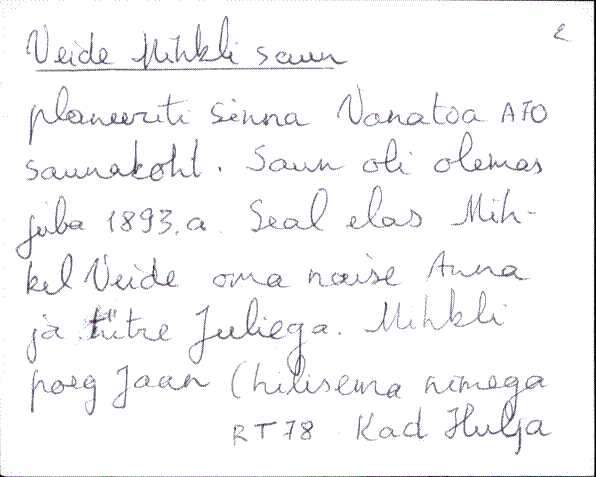 2
Veide Mihkli saun
planeeriti sinna Vanatoa A70
saunakoht. Saun oli olemas
juba 1893.a. Seal elas Mih-
kel Veide oma naise Anna
ja tütre Juliega. Mihkli
poeg Jaan (hilisema nimega
RT78 Kad Hulja